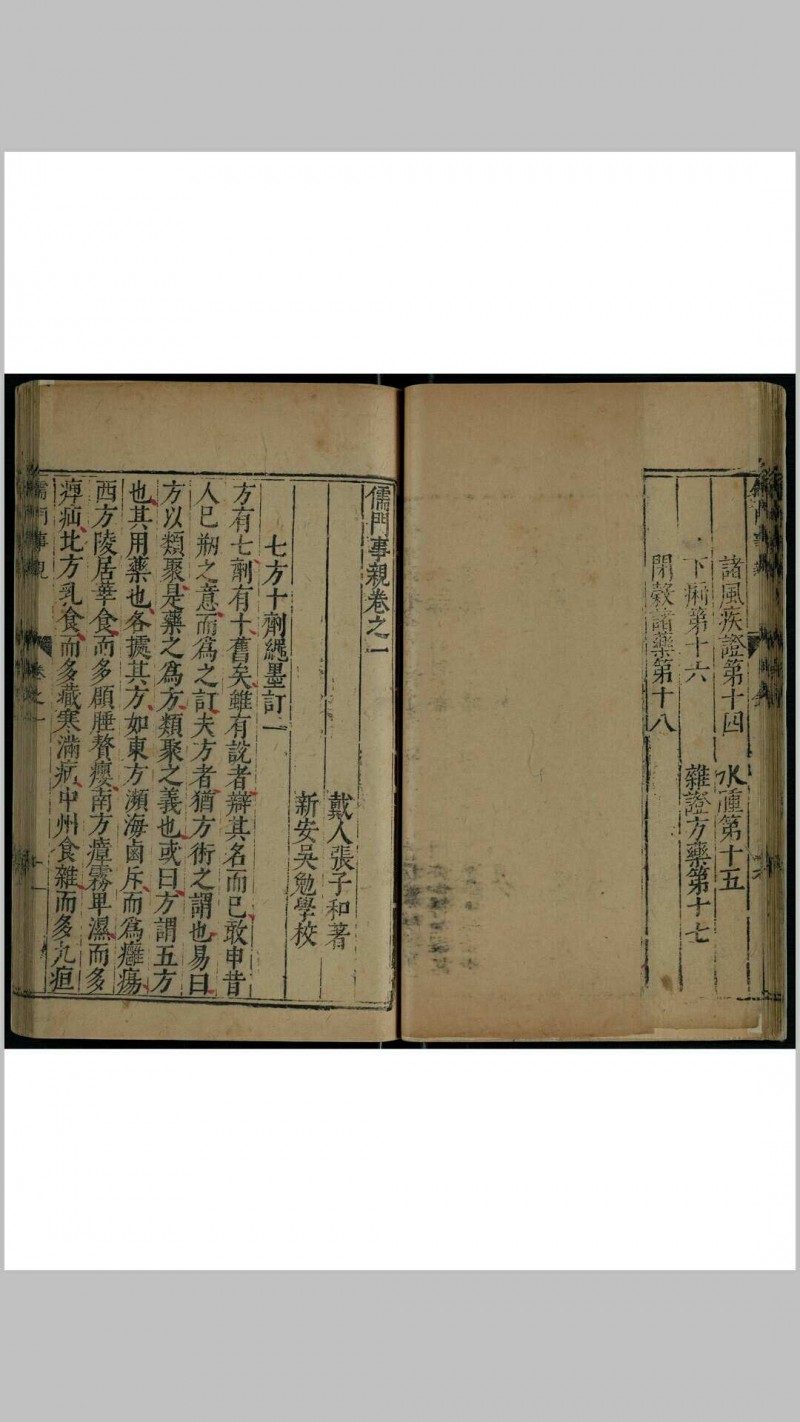 諸風疾證第十四　水腫第十五
下痢第十六　雜證方藥第十七
閉穀諸藥第十八
儒門事親卷之一
戴人張子和著
新安吳勉學校
七方十劑繩墨訂一
方有七劑有十舊矣雖有說者辯其名而已敢申昔
人已瓶之意而爲之訂夫方者猶方術之謂也易曰
方以類聚是藥之爲方類聚之義也或曰方謂五方
也其用藥也各據其方如東方瀕海鹵斥而爲癰瘍
西方陵居華食而多䪼腄贅癭南方瘴霧卑濕而多
痺疝北方乳食而多藏寒滿病中州食雜而多九疸
儒門事親　卷之一　一